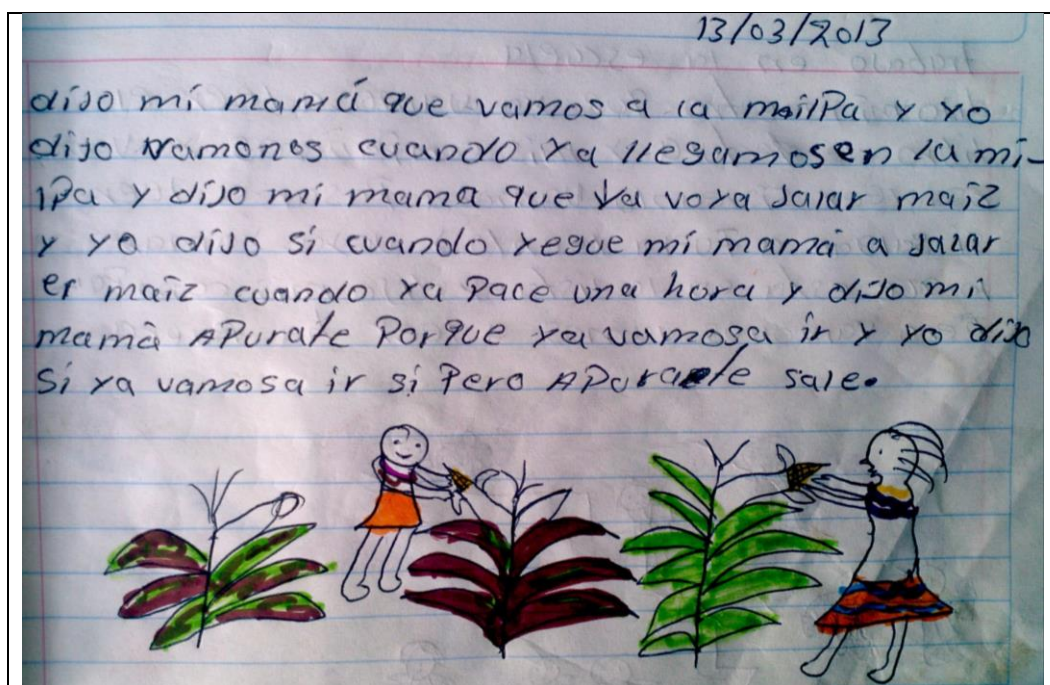 13/03/2013
dijo mí mamá que vamos a la mailPa y yo
dijo vamonos cuando ya llegamos en la mi-
lPa y dijo mi mama que ya voya jalar maíz
y yo dijo sí cuando yegue mi mamá a jalar
er maíz cuando ya Pace una hora y dijo mi
mamá APurate Porque ya vamosa ir y yo dijo
Sí ya vamosa ir sí Pero APurate sale.